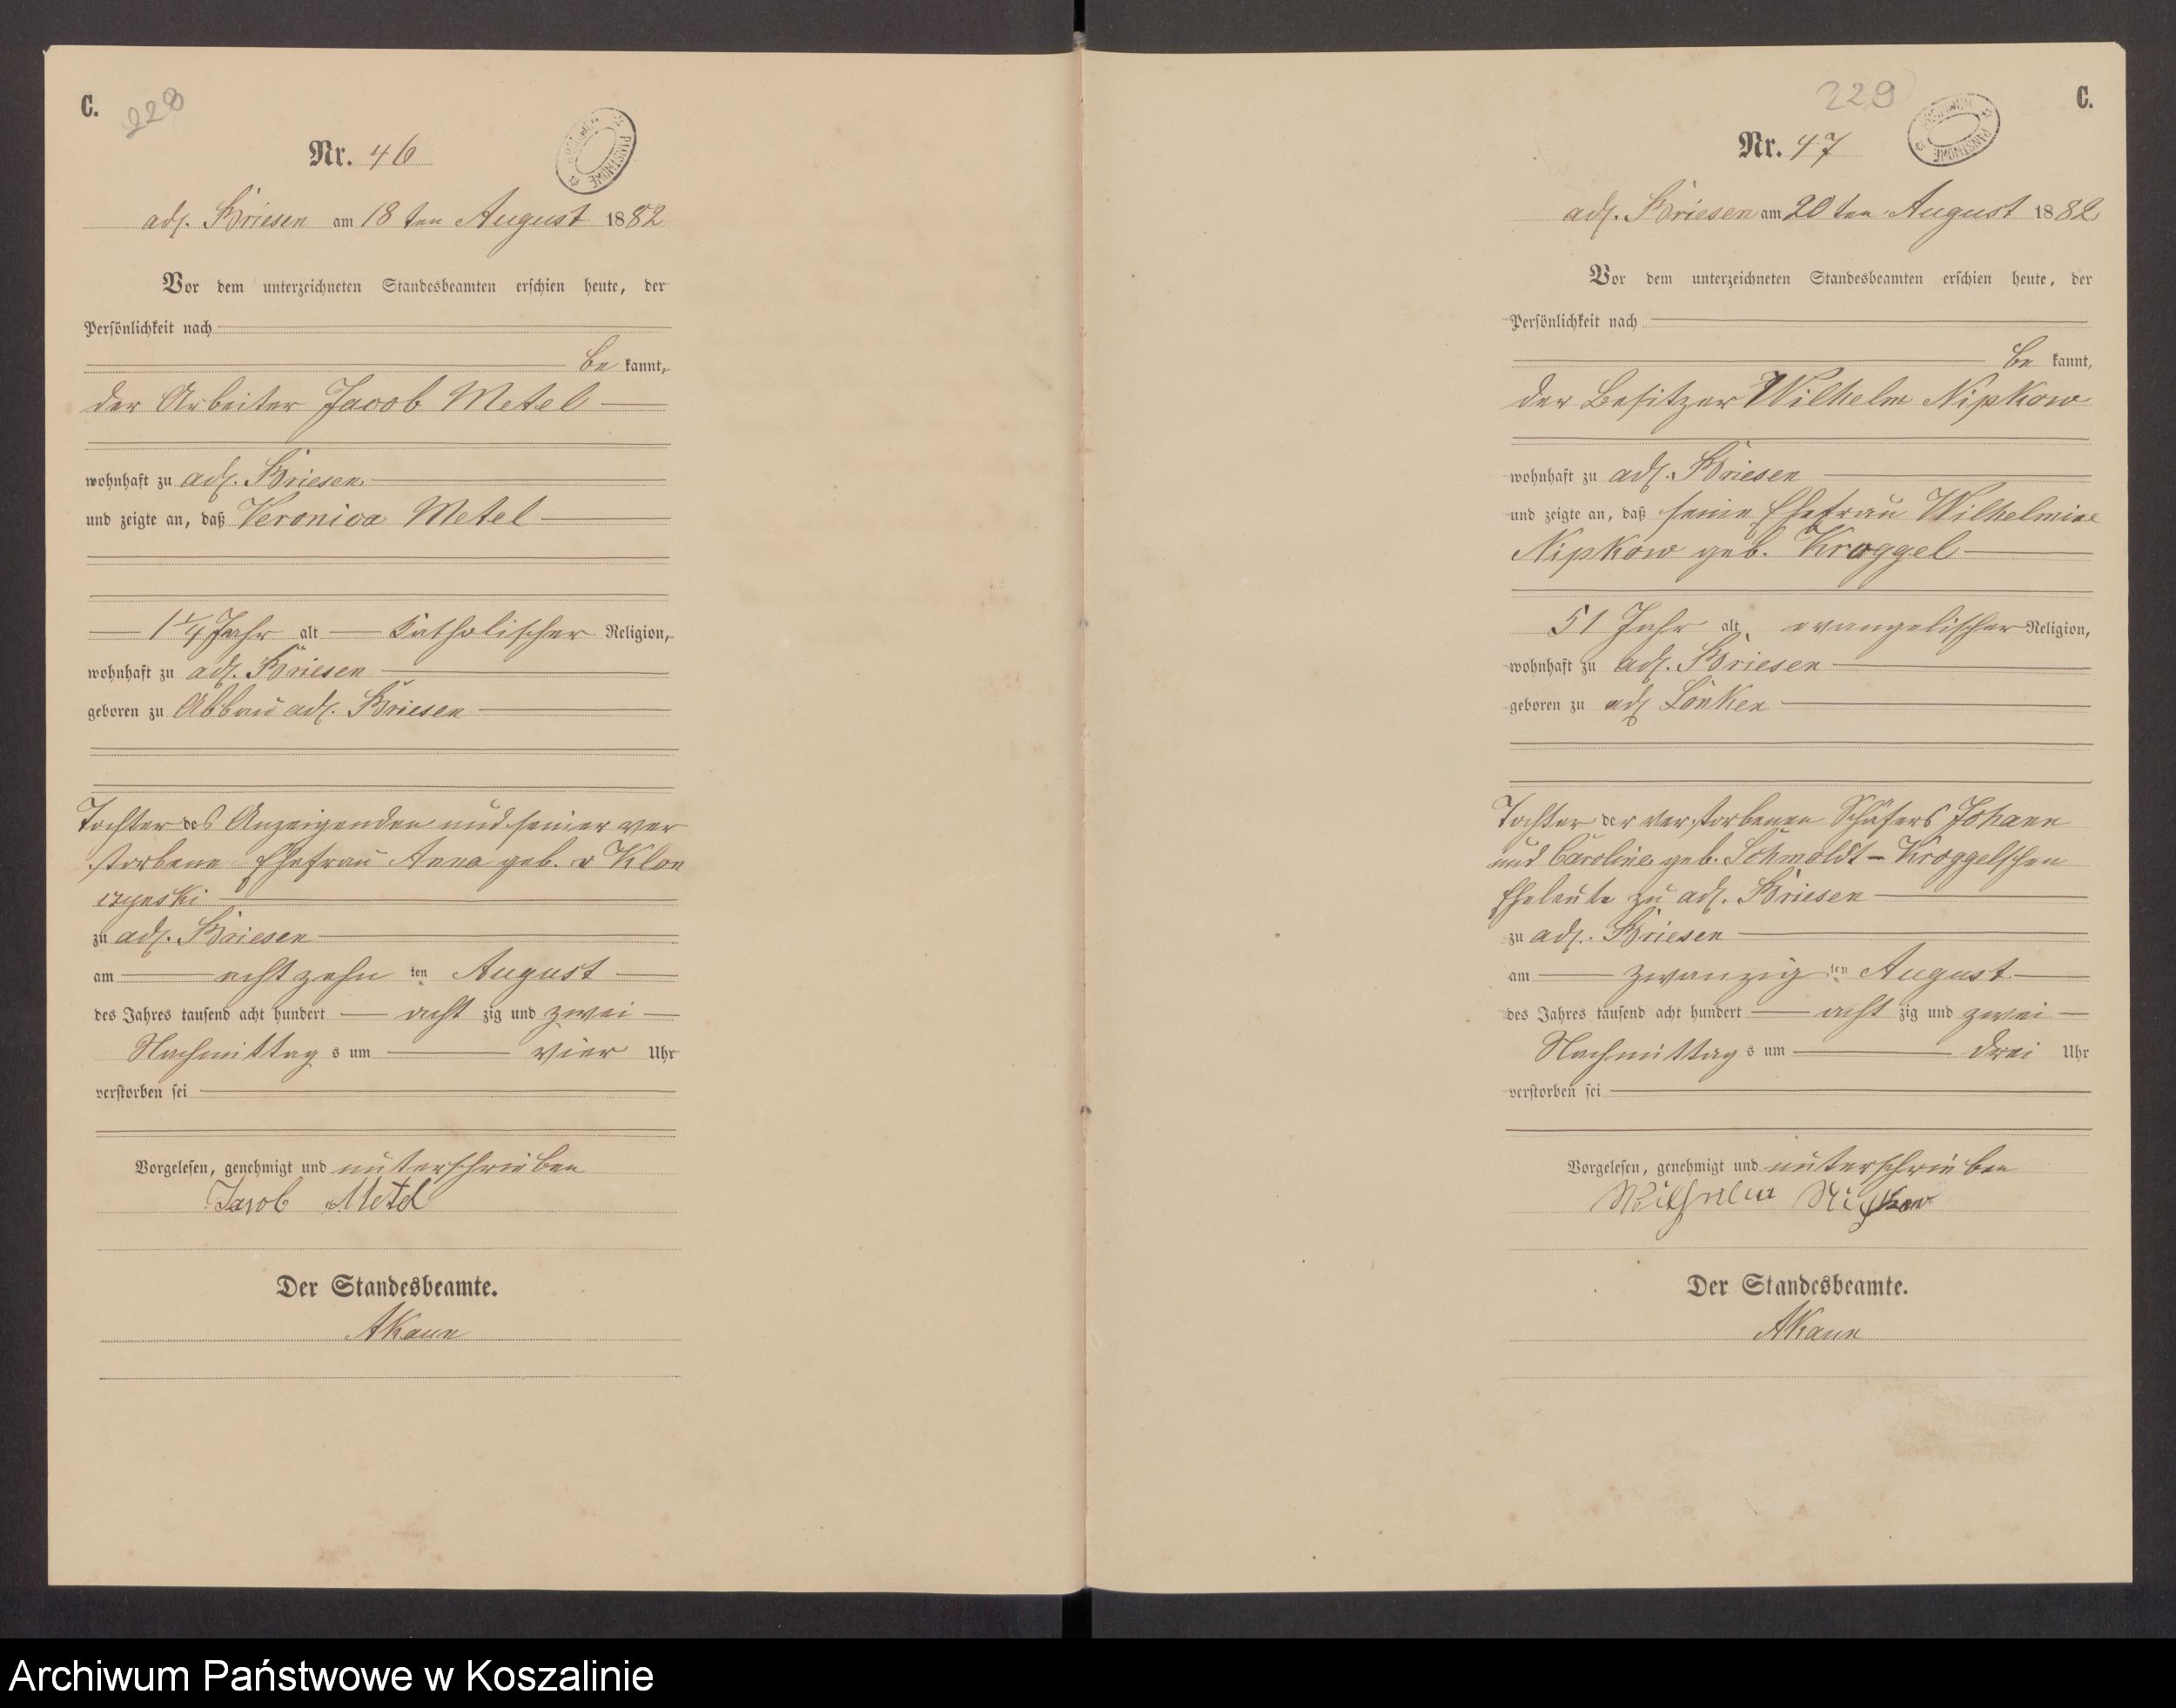 C.
228
Nr. 46
adl. Briesen am 18 ten August 1882
Vor dem unterzeichneten Standesbeamten erschien heute, der
Persönlichkeit nach
be kannt,
der Arbeiter Jacob Metel
wohnhaft zu adl. Briesen
und zeigte an, daß Veronica Metel
1 1/4 Jahr alt Katholischer Religion,
wohnhaft zu adl. Briesen
geboren zu Abbau adl. Briesen
Tochter des Anzeigenden und seiner ver
storbenen Ehefrau Anna geb. v Klon
czynski
zu adl. Briesen
am achtzehn ten August
des Jahres tausend acht hundert acht zig und zwei
Nachmittag s um vier Uhr
verstorben sei
Vorgelesen, genehmigt und unterschrieben
Jacob Metel
Der Standesbeamte.
AKaun
229
C.
Nr. 47
adl. Briesen am 20 ten August 1882
Vor dem unterzeichneten Standesbeamten erschien heute, der
Persönlichkeit nach
be kannt,
der Besitzer Wilhelm Nipkow
wohnhaft zu adl. Briesen
und zeigte an, daß seine Ehefrau Wilhelmine
Nipkow geb. Kroggel
51 Jahr alt, evangelischer Religion,
wohnhaft zu adl. Briesen
geboren zu adl Lonken
Tochter der verstorbenen Schäfers Johann
und Caroline geb. Schmoldt - Kroggelschen
Eheleute zu adl. Briesen
zu adl. Briesen
am zwanzig ten August
des Jahres tausend acht hundert acht zig und zwei
Nachmittag s um drei Uhr
verstorben sei
Vorgelesen, genehmigt und unterschrieben
Wilhelm Nipkow
Der Standesbeamte.
AKaun
Archiwum Państwowe w Koszalinie